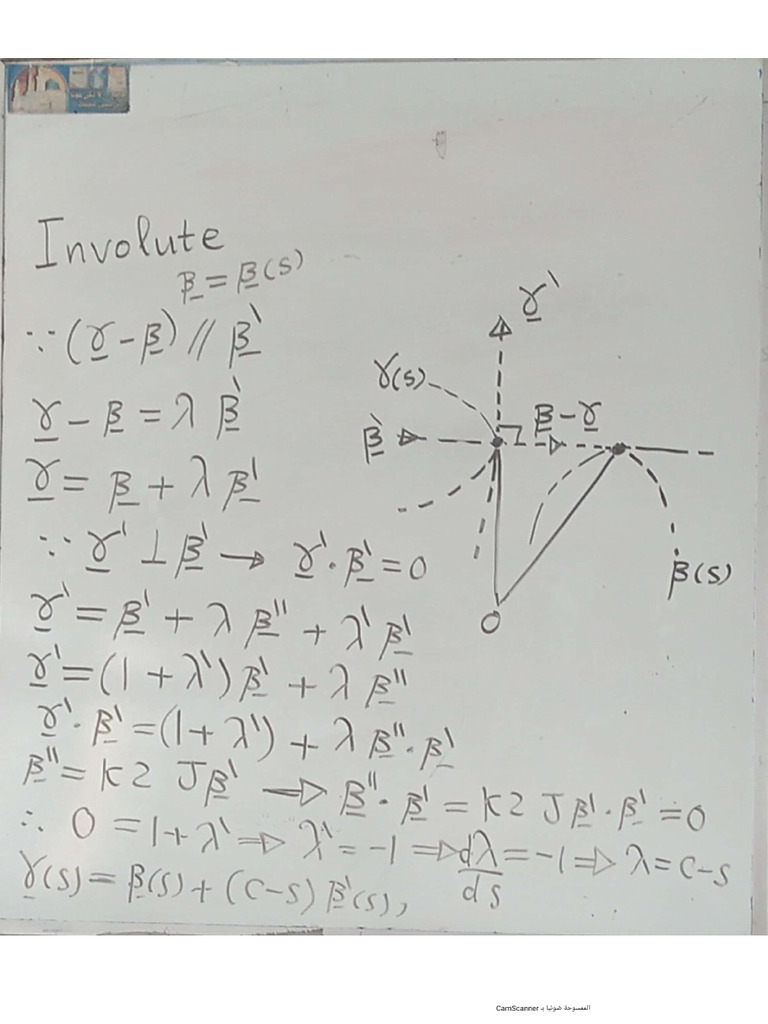 Involute
β = β(s)
∵ (γ - β) // β'
γ - β = λ β'
γ = β + λ β'
∵ γ' ⊥ β' → γ' · β' = 0
γ' = β' + λ β'' + λ' β'
γ' = (1 + λ') β' + λ β''
γ' · β' = (1 + λ') + λ β'' · β'
β'' = K2 J β' ⇒ β'' · β' = K2 J β' · β' = 0
∴ 0 = 1 + λ' ⇒ λ' = -1 ⇒ dλ/ds = -1 ⇒ λ = c - s
γ(s) = β(s) + (c - s) β'(s),
γ'
γ(s)
β'
β - γ
β(s)
O
الممسوحة ضوئيا بـ CamScanner